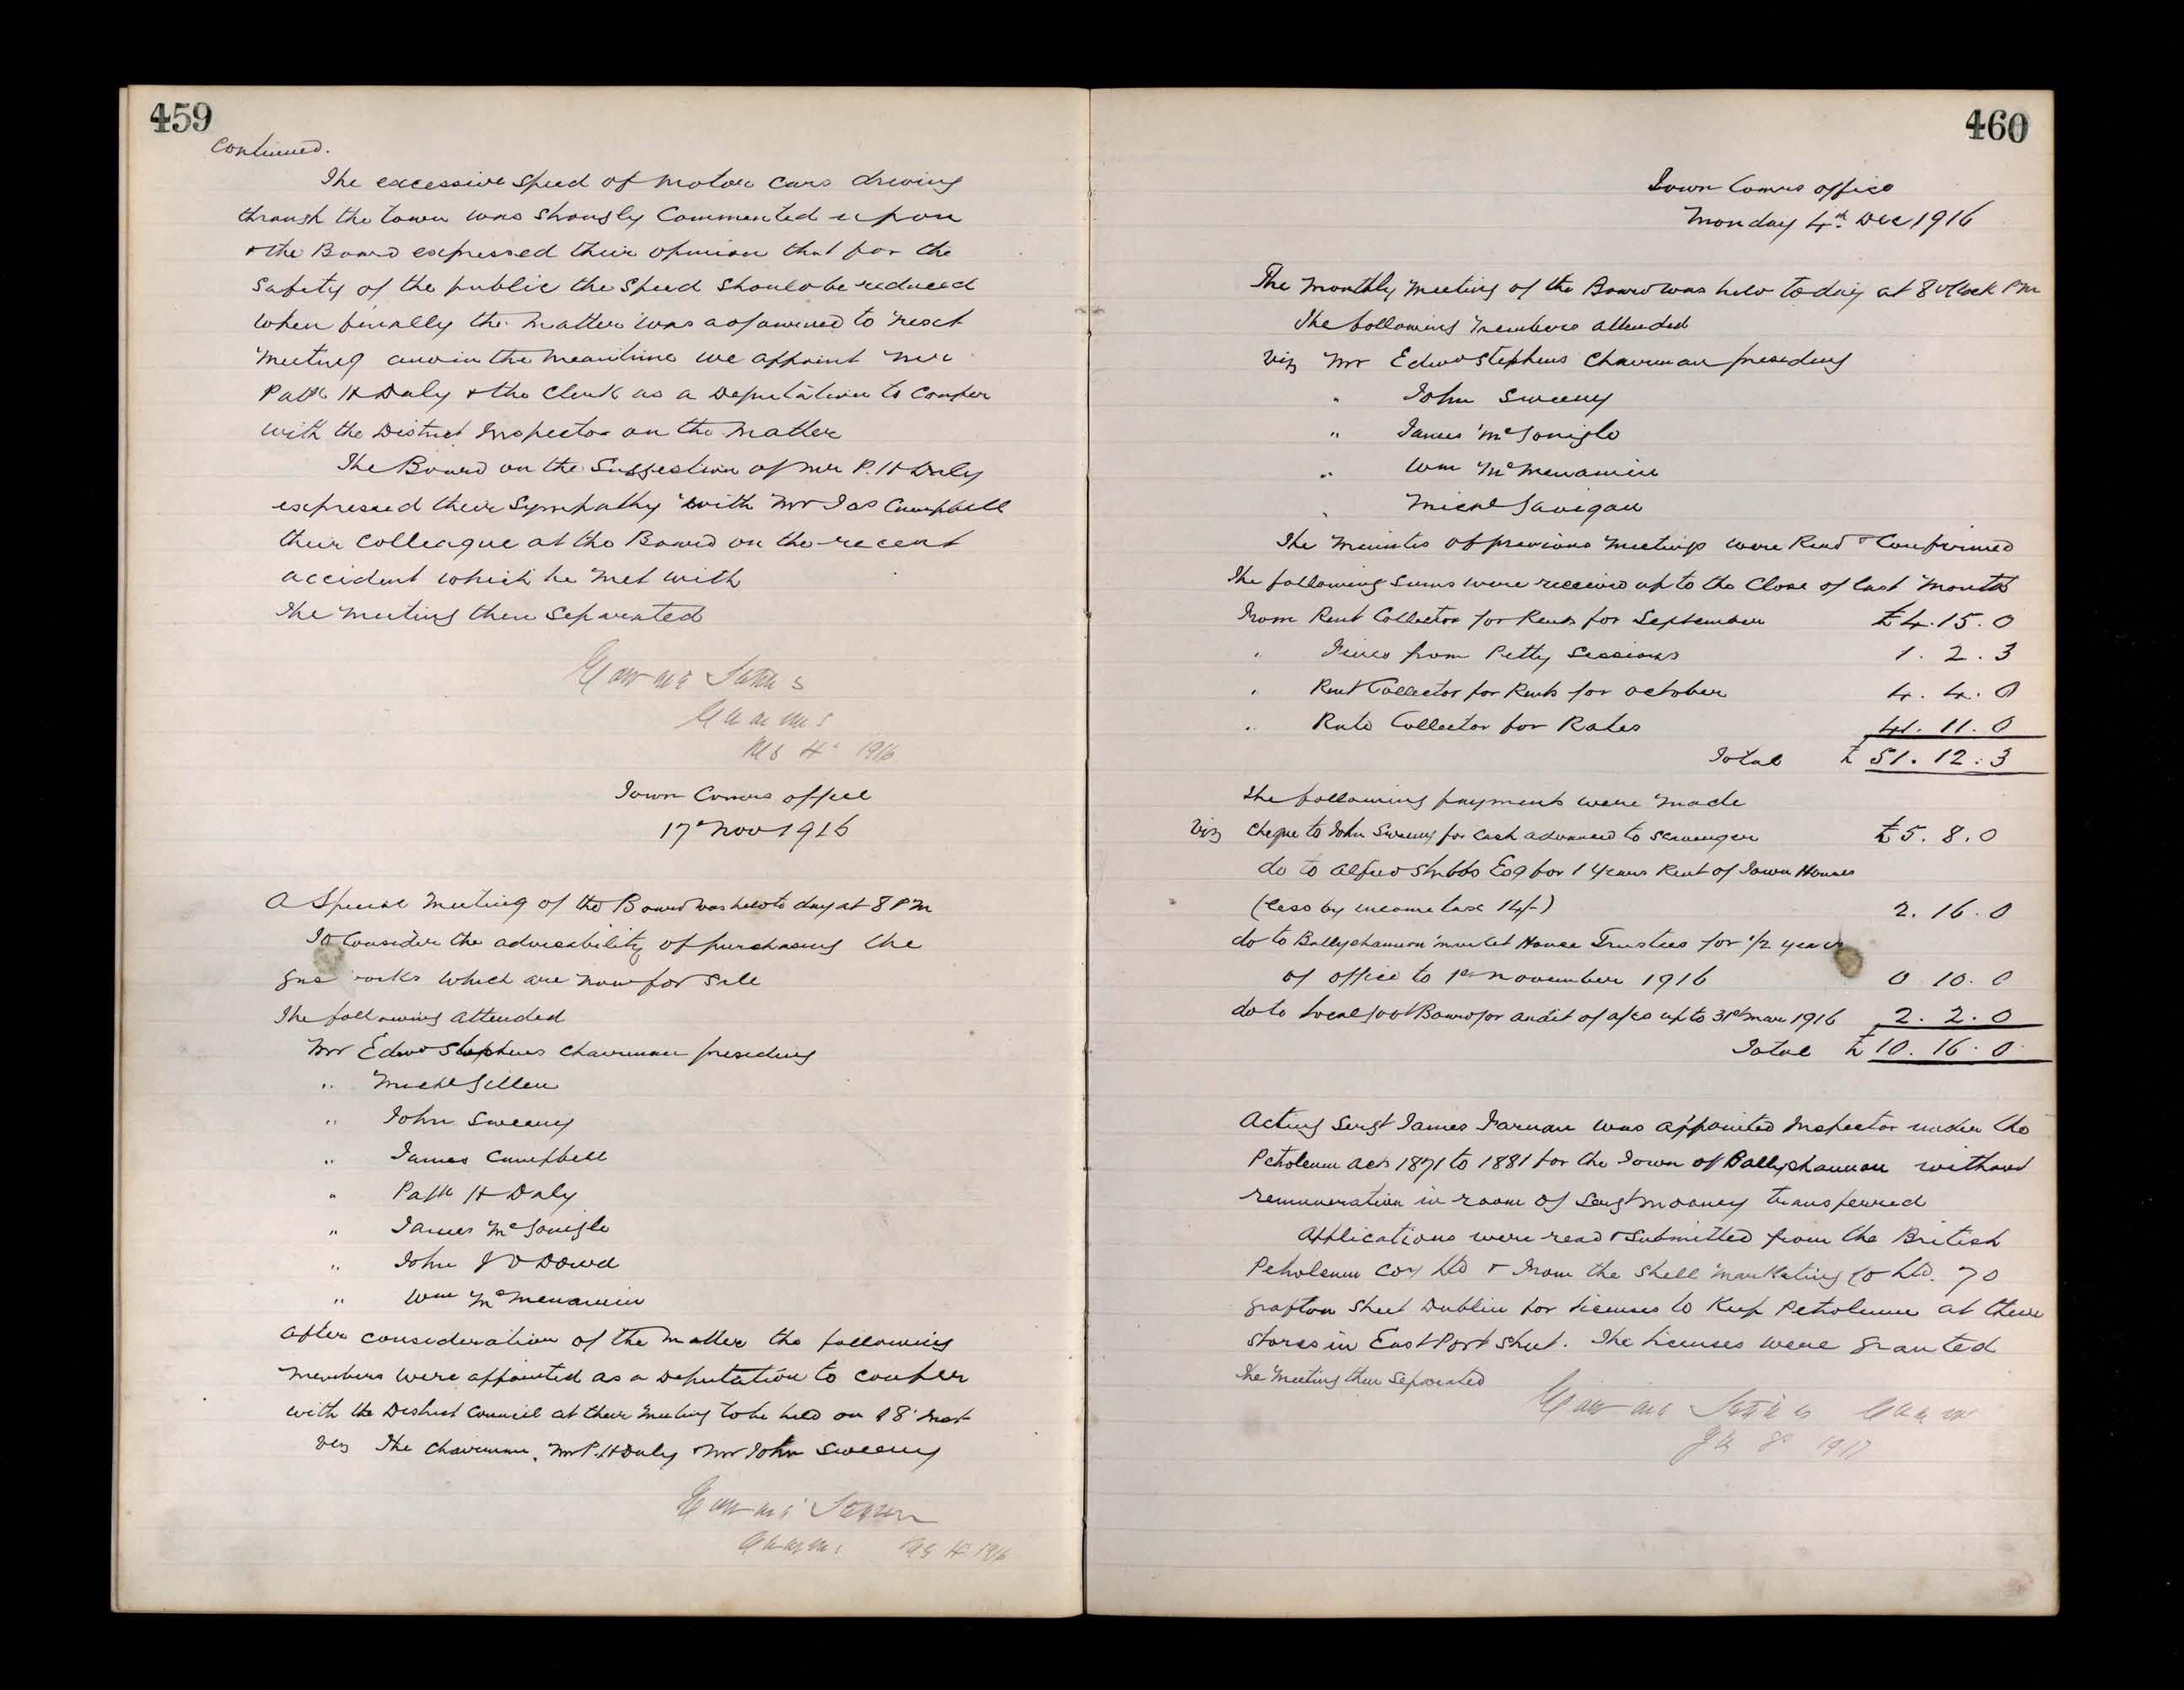 459
Continued.
The excessive speed of motor cars driving
through the town was strongly commented upon
& the Board expressed their opinion that for the
safety of the public the speed should be reduced
when finally the matter was adjourned to next
meeting and in the meantime we appoint Mr
Patk H Daly & the Clerk as a Deputation to confer
with the District Inspector on the matter
The Board on the Suggestion of Mr P. H Daly
expressed their Sympathy with Mr Jas Campbell
their colleague at the Board on the recent
accident which he met with
The meeting then Separated
Dec 4th 1916
Town Comrs office
17th Nov 1916
A Special Meeting of the Board was held to day at 8 PM
To Consider the adviseability of purchasing the
gas works which are now for Sale
The following attended
Mr Edwd Stephens Chairman presiding
" Michl Gillen
" John Sweeny
" James Campbell
" Patk H Daly
" James McGonigle
" John J O Dowd
" Wm McMenamin
After consideration of the matter the following
members were appointed as a Deputation to confer
with the District Council at their meeting to be held on 18th inst
viz The Chairman, Mr P. H Daly & Mr John Sweeny
Dec 4th 1916
460
Town Comrs office
Monday 4th Dec 1916
The Monthly Meeting of the Board was held to day at 8 o'clock P.M
The following members attended
Viz Mr Edwd Stephens Chairman presiding
" John Sweeny
" James McGonigle
" Wm McMenamin
" Michl Gavigan
The Minutes of previous meetings were Read & Confirmed
The following sums were received up to the Close of last Month
From Rent Collector for Rents for September £4.15.0
" Fines from Petty Sessions 1.2.3
" Rent Collector for Rents for October 4.4.0
" Rate Collector for Rates 41.11.0
Total £51.12.3
The following payments were made
Viz Cheque to John Sweeny for Cash advanced to Scavenger £5.8.0
do to Alfred Stubbs Esq for 1 Years Rent of Town Houses
(less by income tax 14/-) 2.16.0
do to Ballyshannon Market House Trustees for 1/2 years
of office to 1st November 1916 0 10.0
do to Local Govt Board for audit of a/cs up to 31st Mar 1916 2.2.0
Total £10.16.0
Acting Sergt James Farnan was appointed Inspector under the
Petroleum Acts 1871 to 1881 for the Town of Ballyshannon without
remuneration in room of Sergt Mooney transferred
Applications were read & Submitted from the British
Petroleum Coy Ltd & from the Shell Marketing Co Ltd. 70
Grafton Street Dublin for licenses to Keep Petroleum at their
Stores in East Port Street. The licenses were granted
The Meeting then Separated
8th 1917